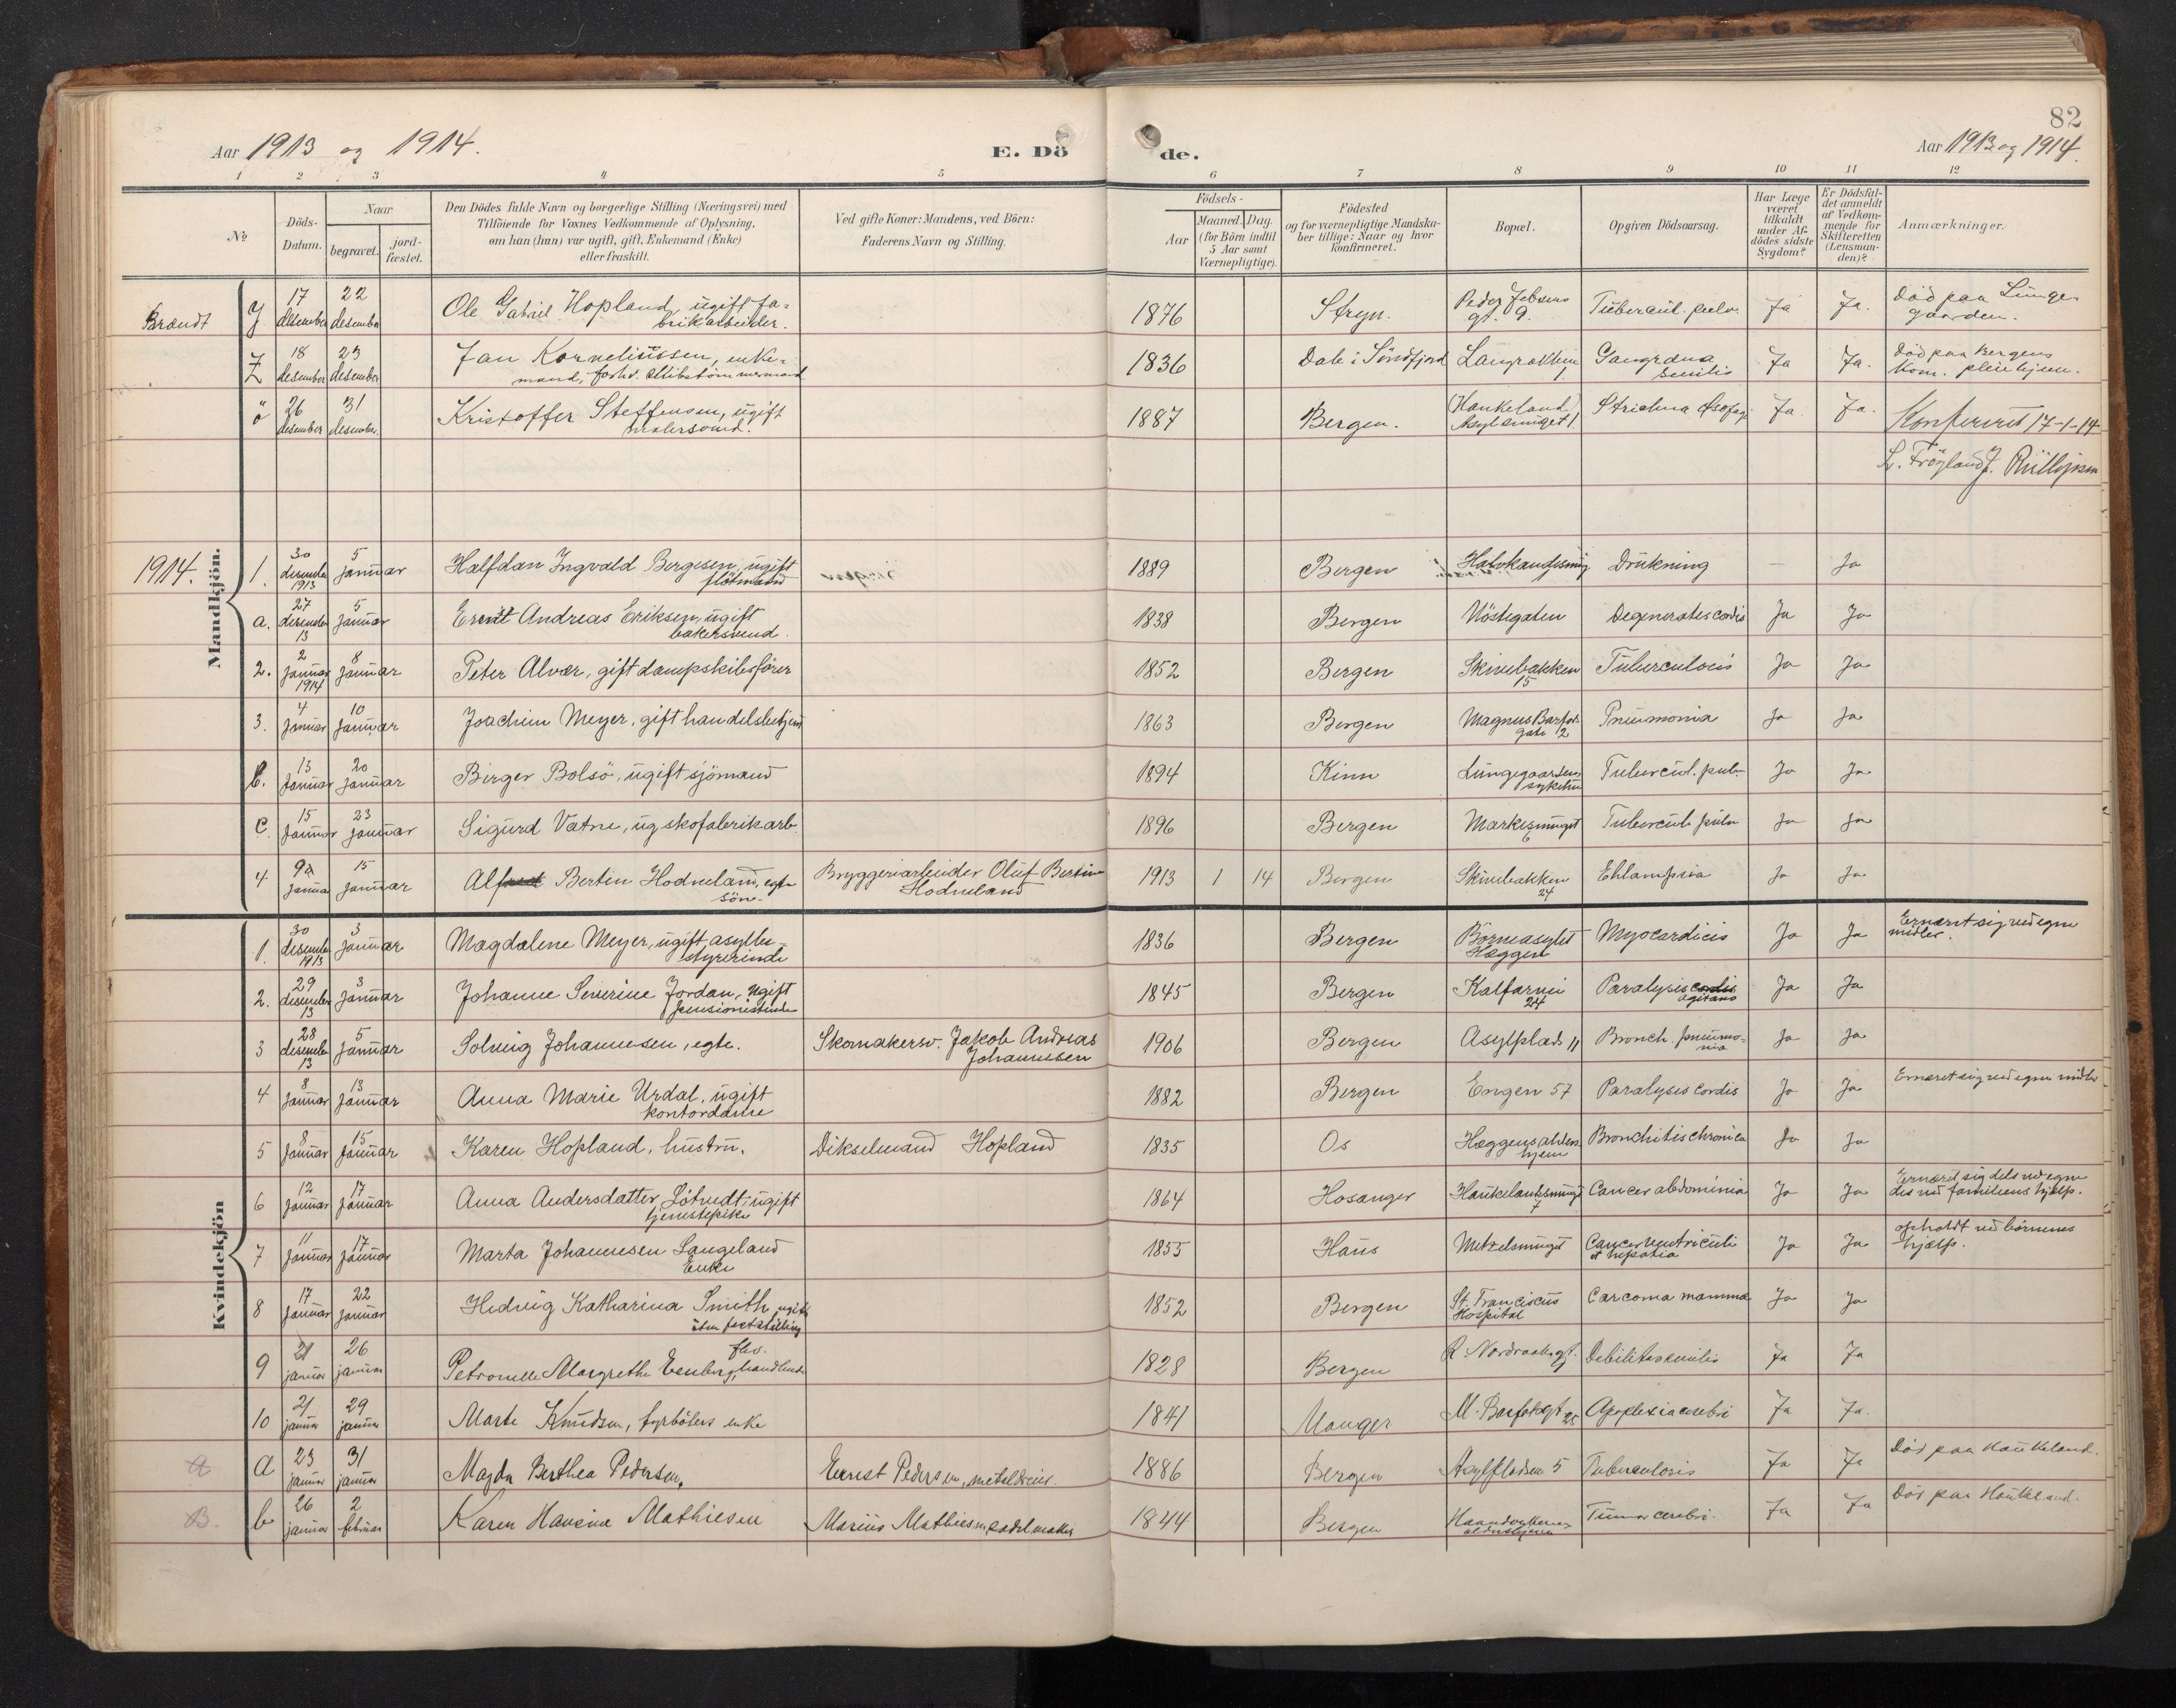 82
Aar 1913 og 1914.
E. Döde.
Aar 1913 og 1914.
1 2 3 4 5 6 7 8 9 10 11 12
No
Döds-Datum.
Naar
begravet.
jord-fæstet.
Den Dödes fulde Navn og borgerlige Stilling (Næringsvei) med
Tilföiende for Voxnes Vedkommende af Oplysning,
om han (hun) var ugift, gift, Enkemand (Enke)
eller fraskilt.
Ved gifte Koner: Mandens, ved Börn:
Faderens Navn og Stilling.
Födsels-
Aar
Maaned. Dag.
(for Börn indtil
5 Aar samt
Værnepligtige).
Födested
og for værnepligtige Mandska-
ber tillige: Naar og hvor
konfirmeret.
Bopæl.
Opgiven Dödsaarsag.
Har Læge
været
tilkaldt
under Af-
dödes sidste
Sygdom?
Er Dödsfal-
det anmeldt
af Vedkom-
mende for
Skifteretten
(Lensman-
den)?
Anmærkninger.
Brændt
17 desember 22 desember Ole Gabriel Hopland, ugift fa-
brikarbeider. 1876 Stryn. Peder Jebsens gt. 9. Tubercul. pulm. Ja Ja. Död paa Lunge-
gaarden.
Z 18 desember 23 desember Jan Korneliussen, enke-
mand, forhv. skibstömmermand 1836 Dale i Söndfjord 1. Gangræna senilis Ja Ja. Död paa Bergens
kom. pleiehjem.
ö 26 desember 31 desember Kristoffer Steffensen, ugift
malersvend. 1887 Bergen. (Haukeland) Asylsmuget 1 Ja Ja. Konfereret 17-1-14
Mandkjön.
1914.
1. 30 desember 1913 5 Januar Halfdan Ingvald Bergesen, ugift
flötmand 1889 Bergen Drukning — Ja
a. 27 desember 13 5 Januar Andreas Eriksen, ugift
bakersvend. 1838 Bergen Nöstegaten Degeneratio cordis Ja Ja
2. 2 Januar 1914 8 Januar Peter Alvær, gift dampskibsförer 1852 Bergen Skivebakken 15 Tuberculosis Ja Ja
3. 4 Januar 10 Januar Joachim Meyer, gift handelsbetjent 1863 Bergen Magnus Barfods gate 2 Pneumonia Ja Ja
b. 13 Januar 20 Januar Birger Bolsö, ugift sjömand 1894 Kinn Lungegaardens sykehus Tubercul. pulm Ja Ja
c. 15 Januar 23 januar Sigurd Vatne, ug skofabrikarb. 1896 Bergen Markesmuget 6 Tubercul. pulm Ja Ja
4. 9 Januar 15 Januar Alf Bertin Hodneland, egte
sön. Bryggeriarbeider Oluf Bertin
Hodneland 1913 1 14 Bergen Skivebakken 24 Eklampsia Ja Ja
Kvindekjön
1. 30 desember 1913 3 Januar Magdalene Meyer, ugift, asylbe-
styrerinde 1836 Bergen Börneasylet Hæggen Myocarditis Ja Ja Ernæret sig ved egne
midler.
2. 29 desember 13 3 Januar Johanne Severine Jordan, ugift
pensionistinde 1845 Bergen Kalfarvei 24 Paralysis cordis
agitans Ja Ja
3 28 desember 13 5 Januar Solveig Johannesen, egte. Skomakersv. Jakob Andreas
Johannesen 1906 Bergen Asylplads 11 Bronch. pneumo-
nia Ja Ja
4 8 Januar 13 Januar Anna Marie Urdal, ugift
kontordame 1882 Bergen Engen 57 Paralysis cordis Ja Ja Ernæret sig ved egne midler
5 8 Januar 15 Januar Karen Hopland, hustru. Dikselmand Hopland 1835 Os Hæggens alders
hjem Bronchitis chronica Ja Ja
6 12 Januar 17 Januar Anna Andersdatter ugift
tjenestepike 1864 Hosanger Haukelandsmuget 7 Cancer abdominia Ja Ja Ernæret sig dels ved egne
dels ved familiens hjelp.
7 11 Januar 17 Januar Marta Johannesen Langeland
Enke 1855 Haus Metzelsmuget Cancer ventriculi
et hepatia Ja Ja opholdt ved börnenes
hjælp.
8 17 Januar 22 Januar Hedvig Katharina Smith, ugift
uten fast stilling 1852 Bergen St. Franciscus
Hospital Carcoma mamma Ja Ja
9 21 januar 26 januar Petronelle Margrethe 1828 Bergen R. Nordraaksgt. Debilitas senilis Ja Ja
10 21 januar 29 januar Marte Knudsen, fyrböters enke 1841 Manger M. Barfotsgt 25 Apoplexia cerebri Ja Ja.
a a 23 januar 31 januar Magda Berthea Pedersen, Ernest Pedersen, metaldreier. 1886 Bergen Asylpladsen 5 Tuberculosis Ja Ja Död paa Haukeland.
B. b 26 januar 2 februar Karen Hansine Mathiesen Marius Mathiesen, sadelmaker 1844 Bergen Haandverkernes
aldershjem Tumor cerebri. Ja Ja Död paa Haukeland.